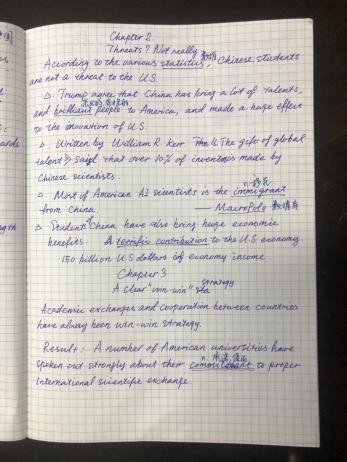 Chapter 2
Threats? Not really
数据
According to the various statistics, Chinese students
are not a threat to the U.S.
△. Trump agree that China has bring a lot of talents,
and brilliant people to America, and made a huge effect
to the innovation of U.S.
△ Written by William R. Kerr The 《 The gift of global
talent》 said that over 10% of inventions made by
Chinese scientists.
n.移民
△. Most of American AI scientists is the immigrant
from China —— MacroPolo 数据库
△ Students China have also bring huge economic
benefits. A terrific contribution to the U.S economy.
150 billion U.S dollars of economy income
Chapter 3
A clear "win-win" strategy
Academic exchanges and cooperation between countries
have alway been win-win strategy.
Result: A number of American universities have
n. 承诺,
spoken out strongly about their commitment to proper
International scientific exchange